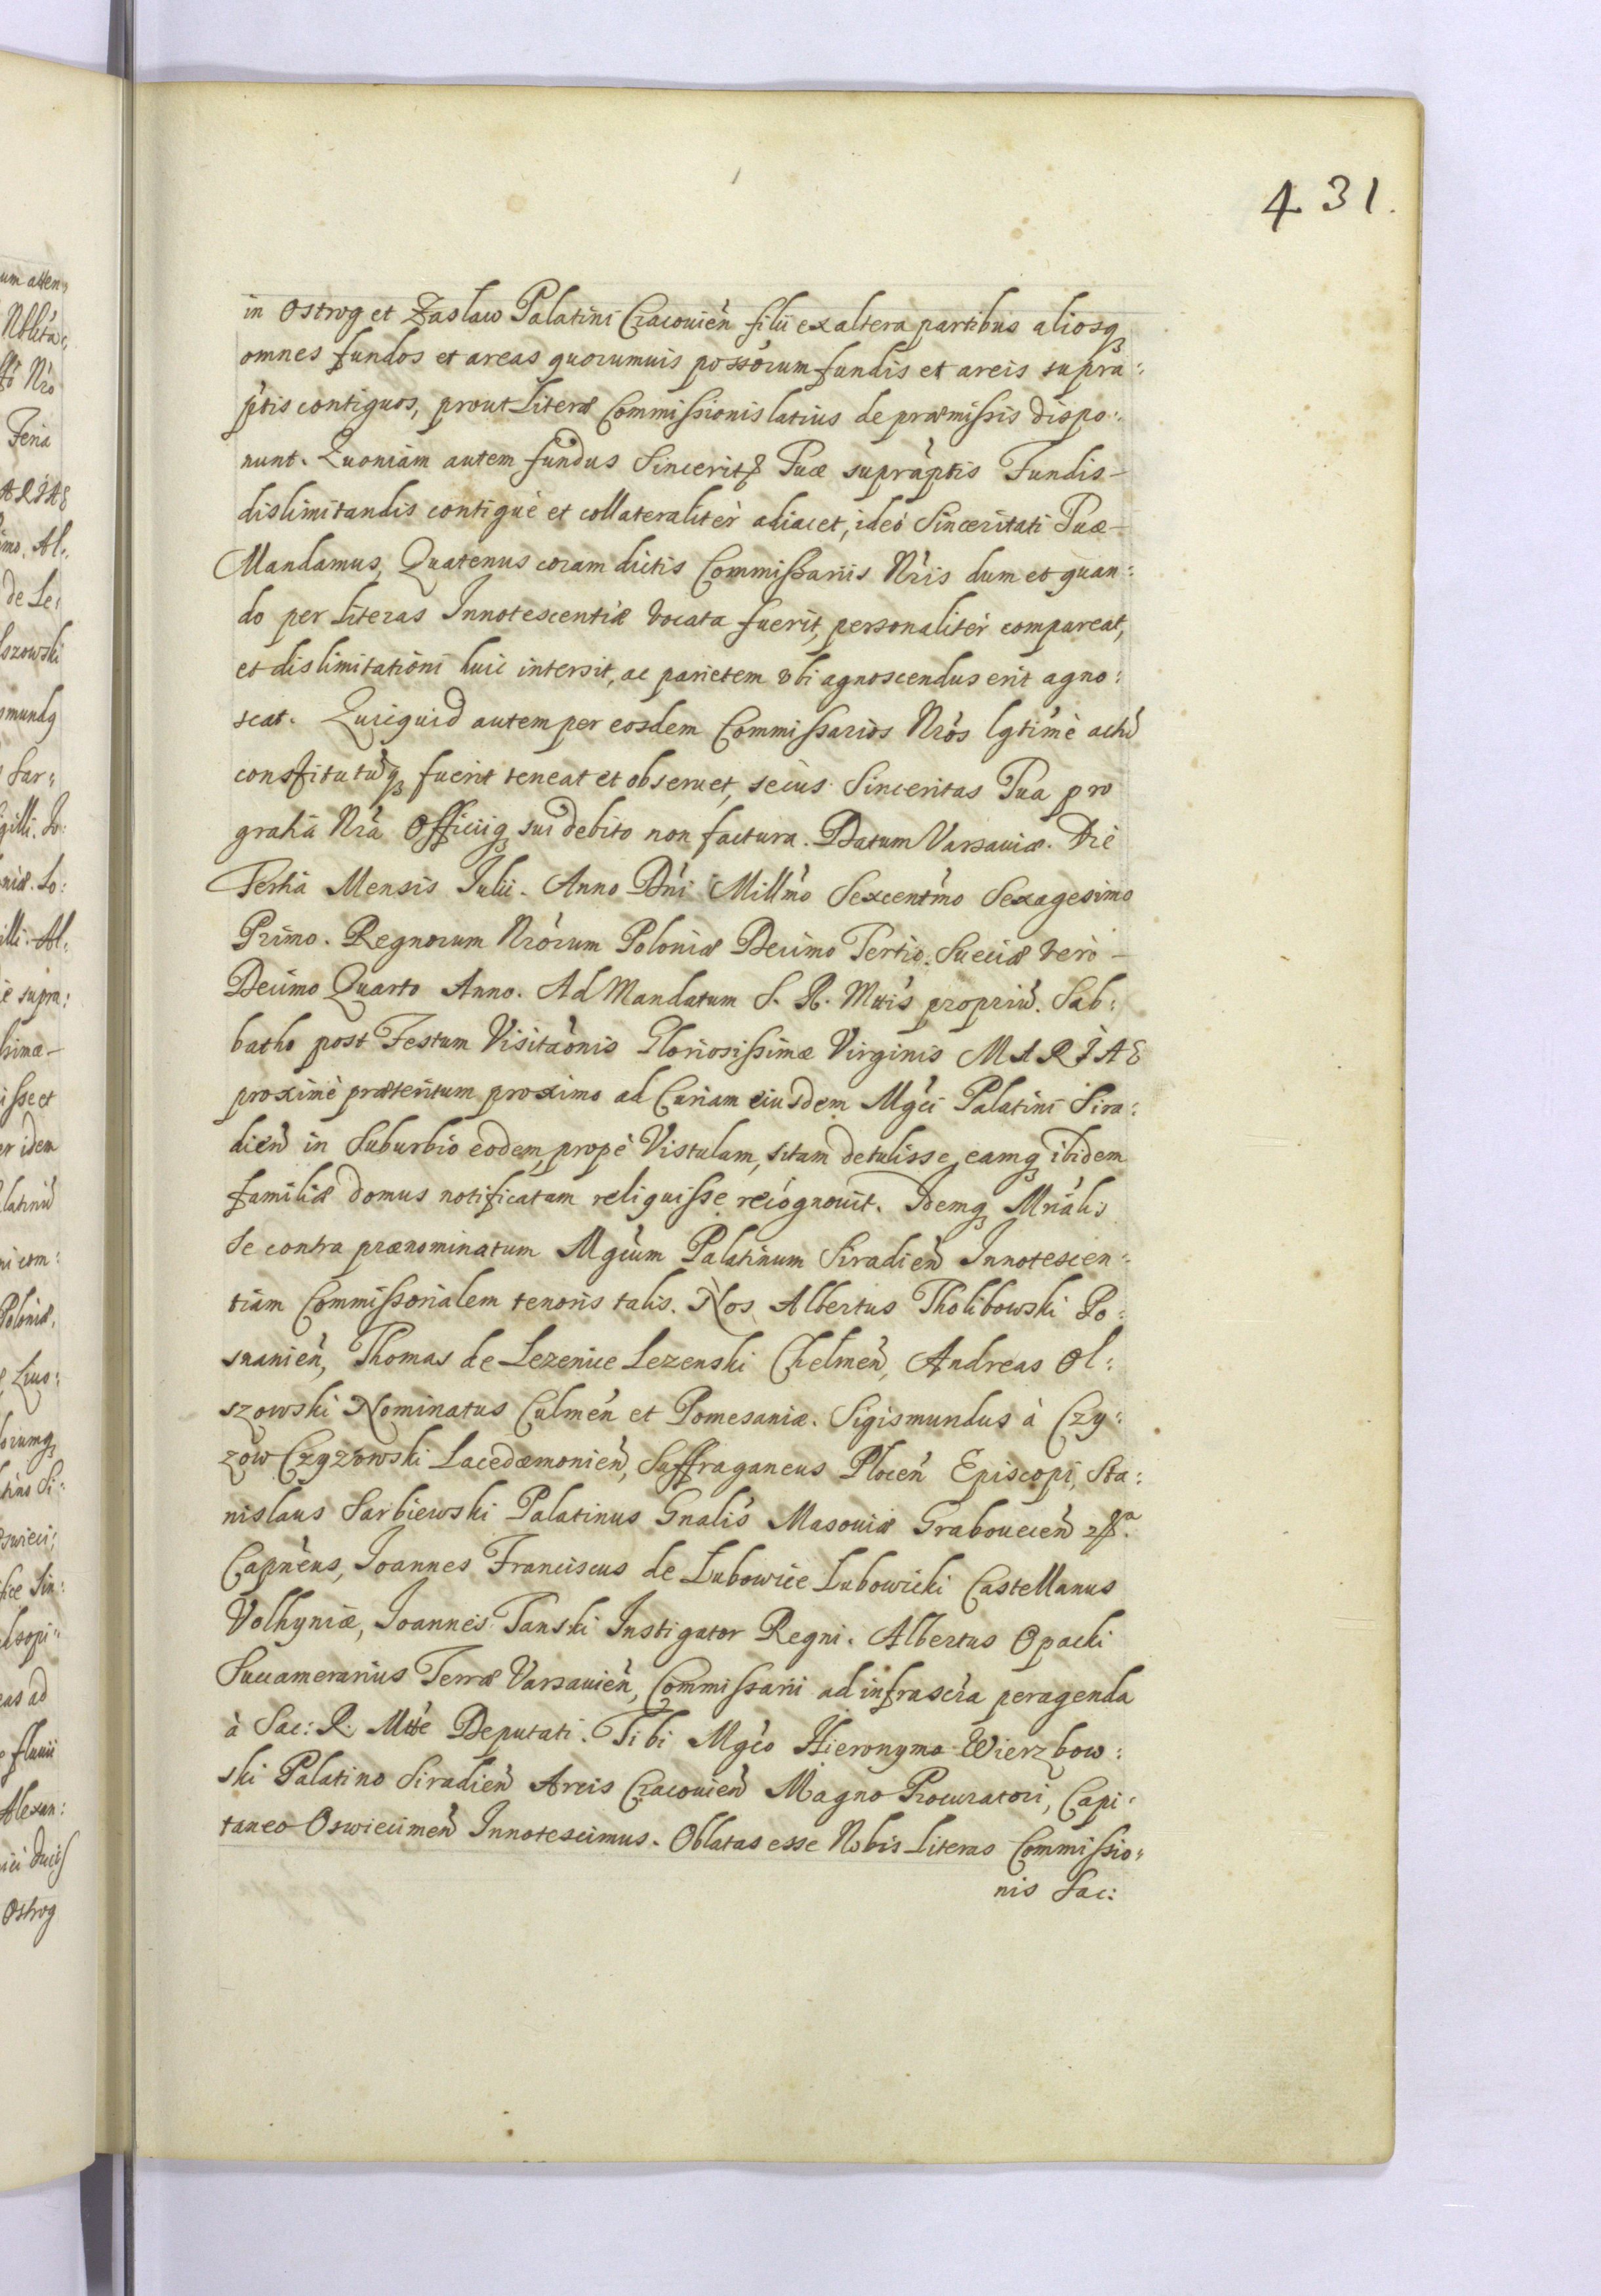 431.
in Ostrog et Zaslaw Palatini Cracouien̄ filii ex altera partibus aliosq
omnes fundos et areas quorumuis possorum fundis et areis supra:
ptis contiguos, prout Literæ Commissionis latius de præmissis dispo:
nunt. Quoniam autem fundus Sincerit Tuæ supraptis Fundis-
dislimitandis contiguè et collateralitèr adiacet, ideò Sinceritati Tuæ-
Mandamus, Quatenus coram dictis Commissariis Nris dum et quan:
do per literas Innotescentiæ vocata fuerit, personalitèr compareat,
et dislimitationi huic intersit, ac parietem vbi agnoscendus erit agno:
scat. Quicquid autem per eosdem Commissarios Nros lgtimè actū
constitutūq fuerit teneat et obseruet, secus Sinceritas Tua pro
gratia Nra Officiiq sui debito non factura. Datum Varsauiæ. Die
Tertia Mensis Julii. Anno Dni Millmo Sexcentmo Sexagesimo
Primo. Regnorum Nrorum Poloniæ Decimo Tertio. Sueciæ verò-
Decimo Quarto Anno. Ad Mandatum S. R. Mttis propriū. Sab:
batho post Festum Visitaonis Gloriosissimæ Virginis MARIAE
proximè præteritum proximo ad Curiam eiusdem Mgci Palatini Sira:
dien̄ in Suburbio eodem, propè Vistulam, sitam detulisse, eamq ibidem
familiæ domus notificatam reliquisse recognouit. Idemq Mrialis
Se contra prænominatum Mgcum Palatinum Siradien̄ Innotescen:
tiam Commissorialem tenoris talis. Nos Albertus Tholibowski Po:
snanien̄, Thomas de Lezenice Lezenski Chelmen̄, Andreas Ol:
szowski Nominatus Culmen̄ et Pomesaniæ. Sigismundus à Czy:
zow Czyzowski Lacedæmonien̄, Suffraganeus Plocen̄ Episcopi, Sta:
nislaus Sarbiewski Palatinus Gnalis Masouiæ Grabouecen̄
Capneus, Joannes Franciscus de Lubowice Lubowicki Castellanus
Volhyniæ, Joannes Tanski Instigator Regni. Albertus Opacki
Succamerarius Terræ Varsauien̄, Commissarii ad infrascra peragenda
à Sac: R. Mtte Deputati. Tibi Mgco Hieronymo Wierzbow:
ski Palatino Siradien̄ Arcis Cracouien̄ Magno Procuratori, Capi:
taneo Oswiecimen̄ Innotescimus. Oblatas esse Nobis Literas Commissio:
nis Sac: